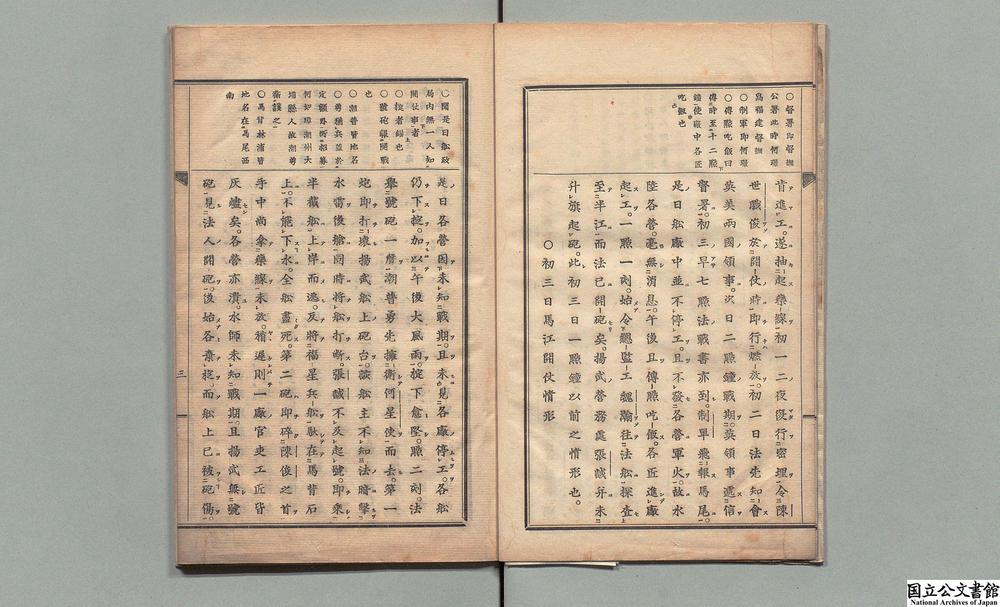 ○督署即督撫
公署此時何璟
爲福建督撫
○制軍即何璟
○傳點吃飯曰
傳時至十二點
鐘使廠中各匠
吃飯也
肯進工。遂抽起藥線。初一二夜復行密埋。令陳
世職俊於開仗時即行燃放。初二日法先知會
英美兩國領事。次日二點鐘戰期。英領事遞信
督署。初三早七點法戰書亦到。制軍飛報馬尾。
是日船廠中並不停工。且不發各營軍火。故水
陸各營。毫無消息。午後且傳點吃飯。各匠進廠
起工。一點一刻。始令總監工魏瀚往法船探查。
至半江而法已開砲矣。揚武營務處張誠幷未
升旗起砲。此初三日一點鐘以前之情形也。
○初三日馬江開仗情形
○開是日船政
局內無一人知
開仗事者
○椗者錨也
○號砲報開戰
也
○潮普皆地名
○勇猶兵並於
定額外所招募
何如璋潮州大
埔縣人故潮勇
衛護之
○馬甘林浦皆
地名在馬尾西
南
是日各營因未知戰期。且未見各廠停工。各船
仍下椗。加以午後大風雨。椗下愈堅。點二刻法
舉號砲一聲。潮普勇先擁衛何星使而去。第一
炮即打壞揚武船上砲台。該船主不知法暗擊
水雷後艙。同時將船打斷。張誠不及起號。即乘
半截船上岸而逃。反將福星兵船馱在馬背石
上。不能下水。全船盡死。第二砲即碎陳俊之首。
手中尚拿藥線未放。稍遲則一廠官吏工匠皆
灰爐矣。各營亦潰。水師未知戰期。且揚武無號
砲。見法人開砲。後始各棄椗。而船上已被砲傷。
三
国立公文書館
National Archives of Japan